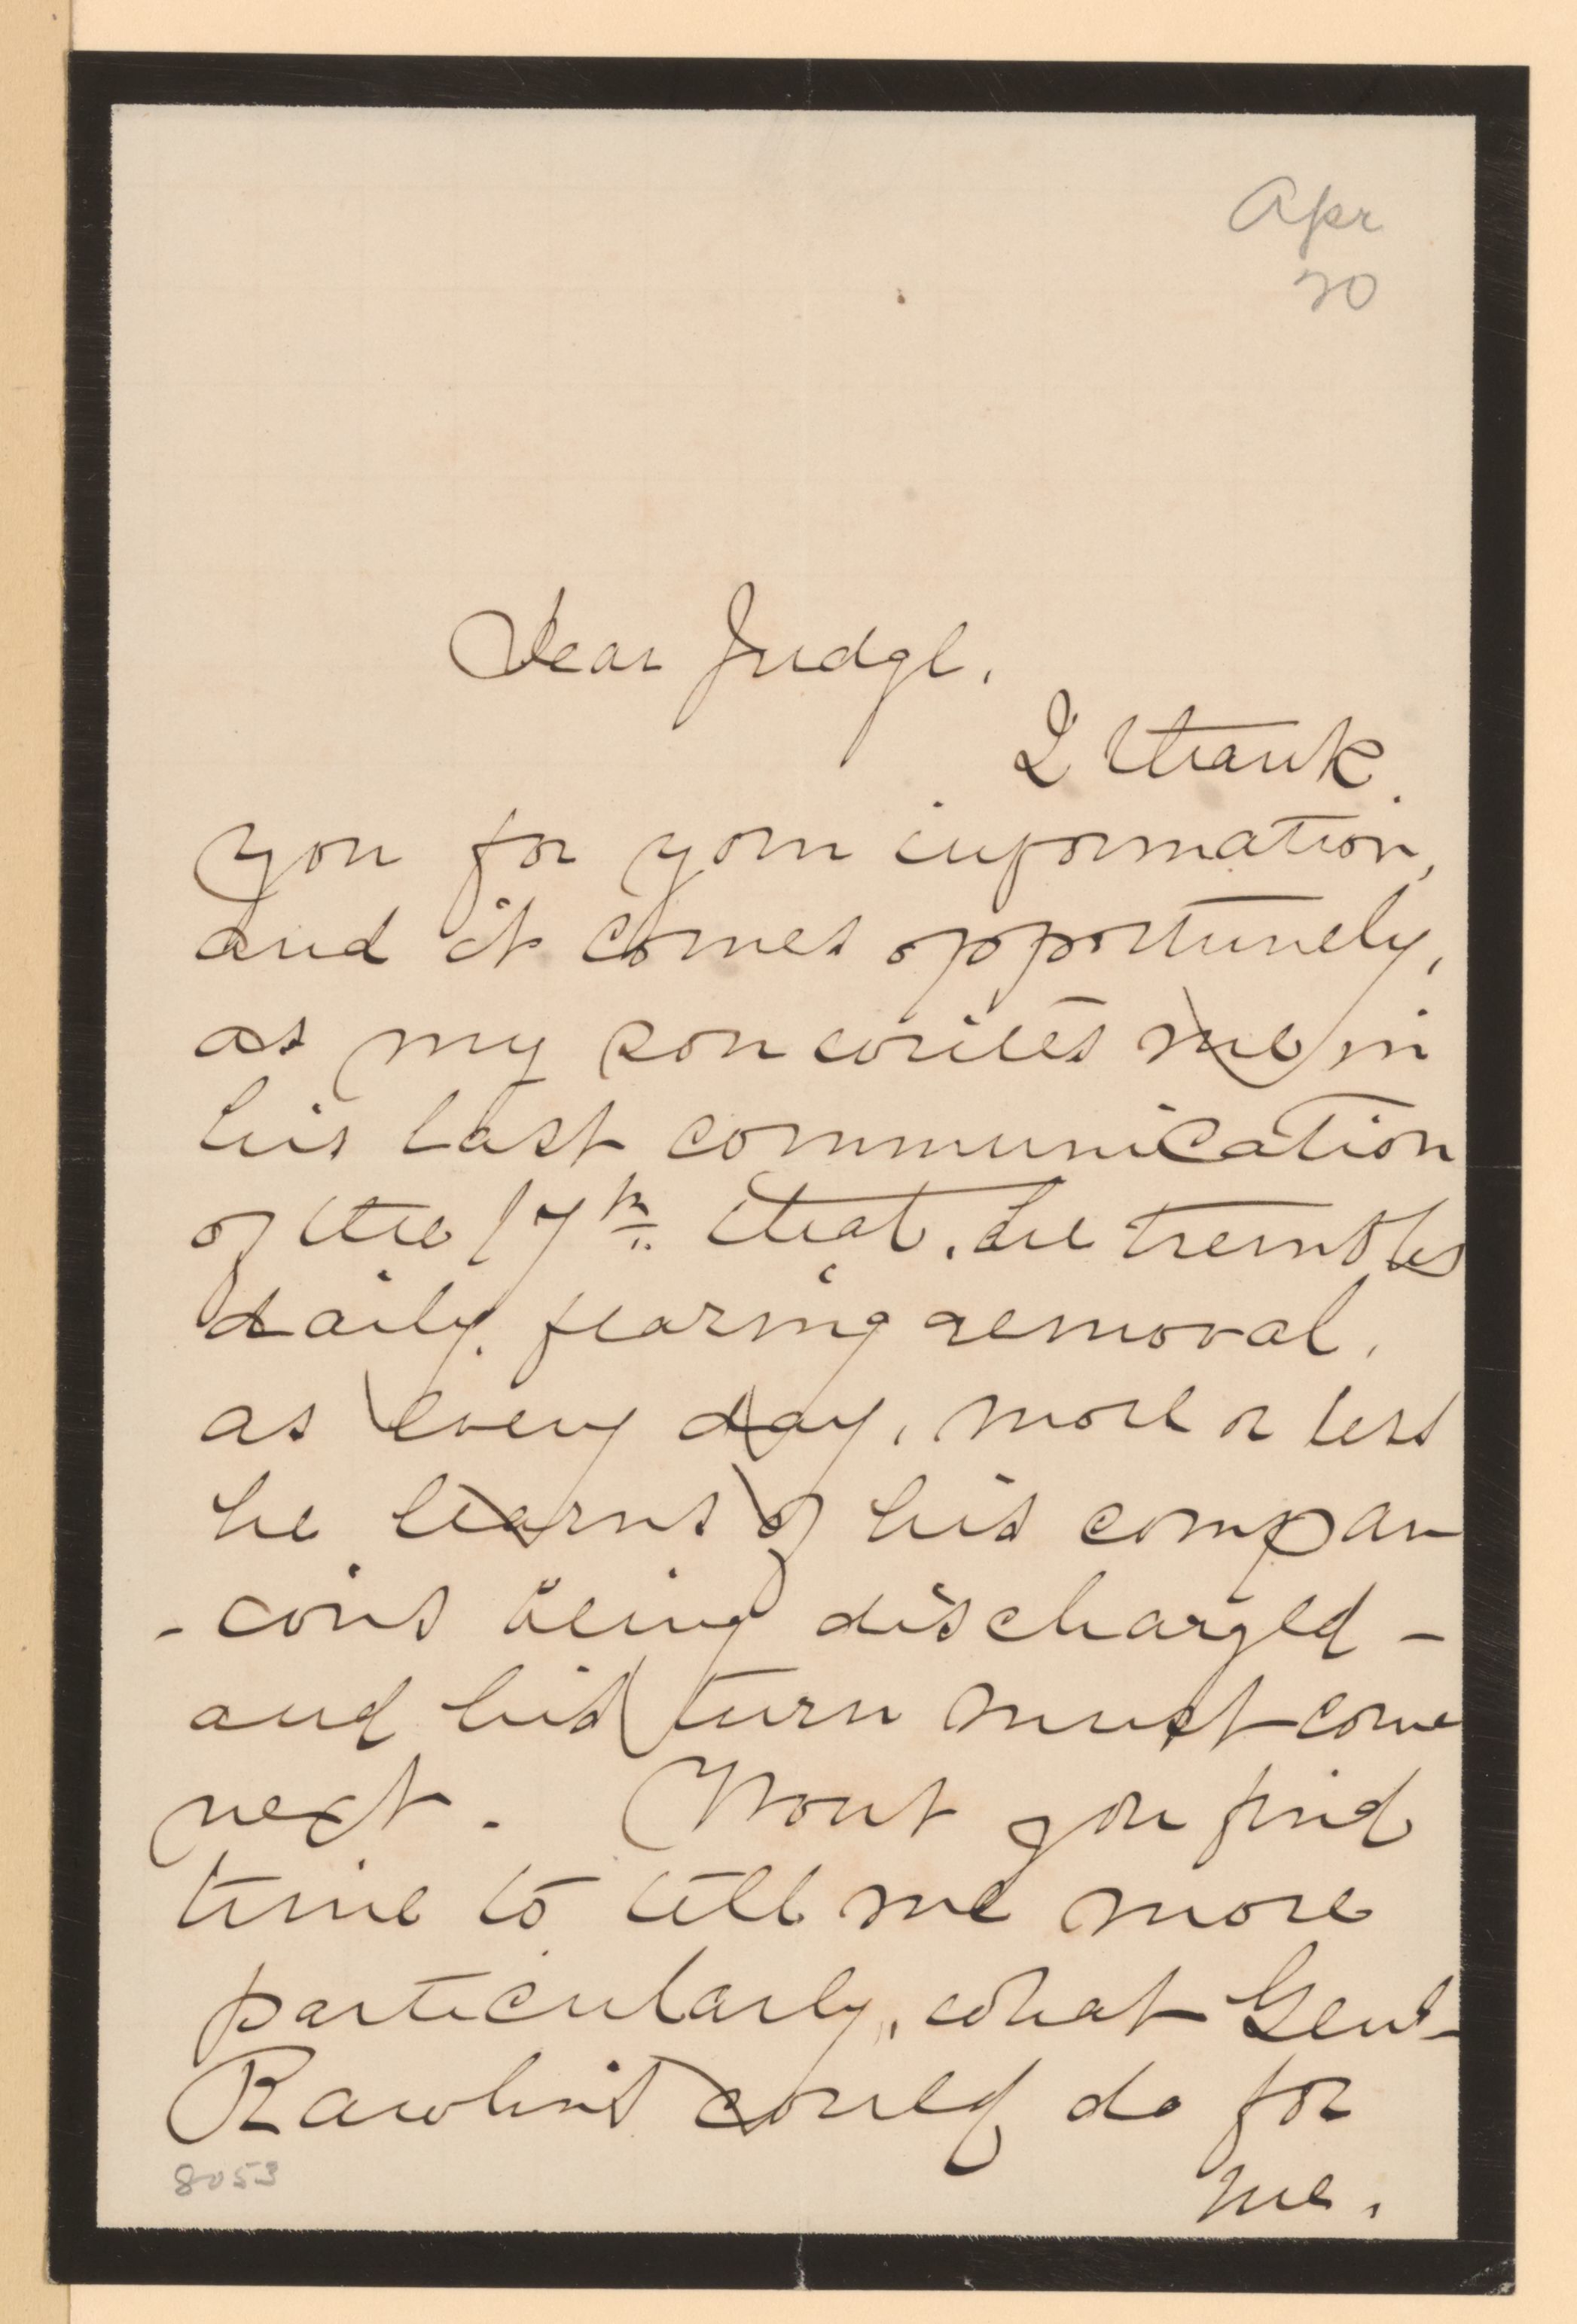 Apr
20
Dear Judge.
I thank
you for your information,
and it comes opportunely,
as my son writes me in
his last communication
of the 17th. that, he trembles
daily, fearing removal,
as every day, more or less
he learns of his compan
-ions being discharged -
and his turn must come
next. Wont you find
time to tell me more
particularly, what Genl
Rawlins could do for
me.
8053